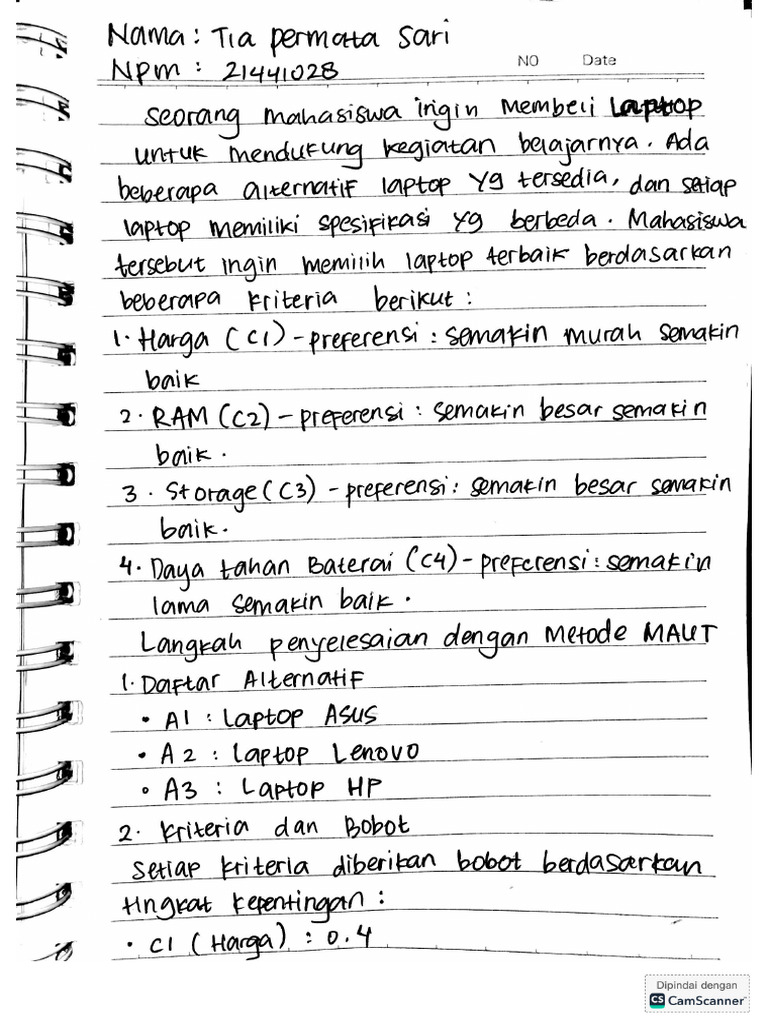 Nama : Tia permata sari
Npm : 21441028
NO Date
seorang mahasiswa ingin membeli Laptop
untuk mendukung kegiatan belajarnya. Ada
beberapa alternatif laptop yg tersedia, dan setiap
laptop memiliki spesifikasi yg berbeda. Mahasiswa
tersebut ingin memilih laptop terbaik berdasarkan
beberapa kriteria berikut :
1. Harga (C1) - preferensi : semakin murah semakin
baik
2. RAM (C2) - preferensi : semakin besar semakin
baik.
3. Storage (C3) - preferensi : semakin besar semakin
baik.
4. Daya tahan Baterai (C4) - preferensi : semakin
lama semakin baik.
Langkah penyelesaian dengan Metode MAUT
1. Daftar Alternatif
• A1 : Laptop Asus
• A2 : Laptop Lenovo
• A3 : Laptop HP
2. Kriteria dan Bobot
setiap kriteria diberikan bobot berdasarkan
tingkat kepentingan :
• C1 (Harga) : 0.4
Dipindai dengan
CS CamScanner